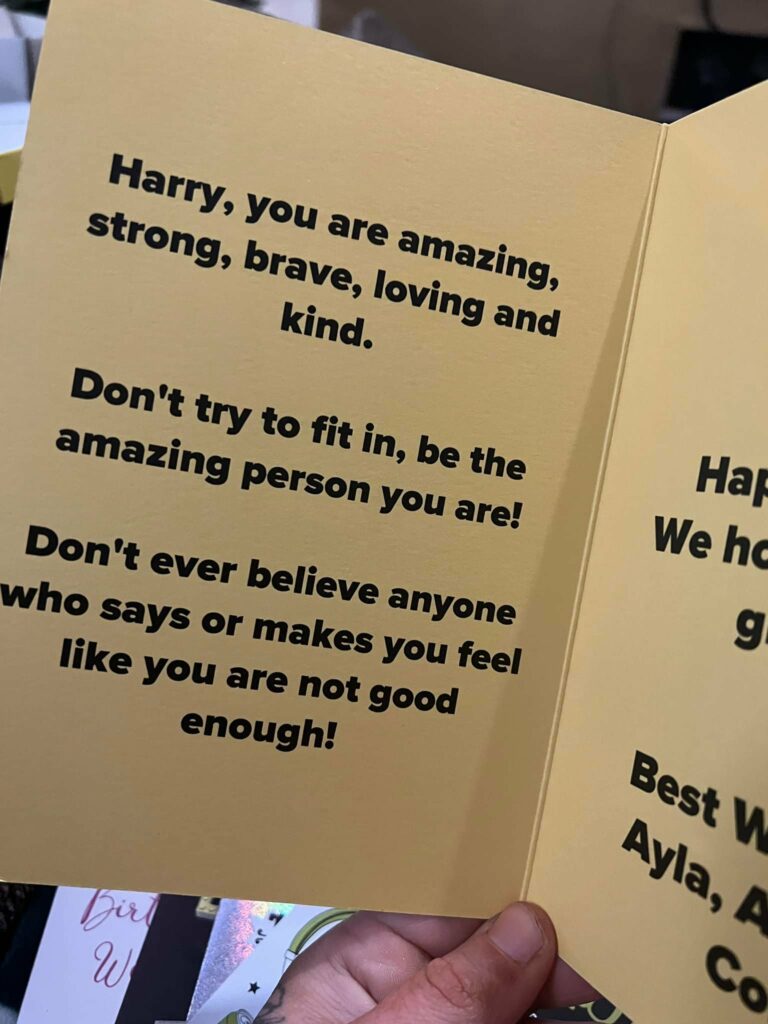 Harry, you are amazing,
strong, brave, loving and
kind.
Don't try to fit in, be the
amazing person you are!
Don't ever believe anyone
who says or makes you feel
like you are not good
enough!
Hap
We ho
g
Best W
Ayla, A
Co
Birt
W